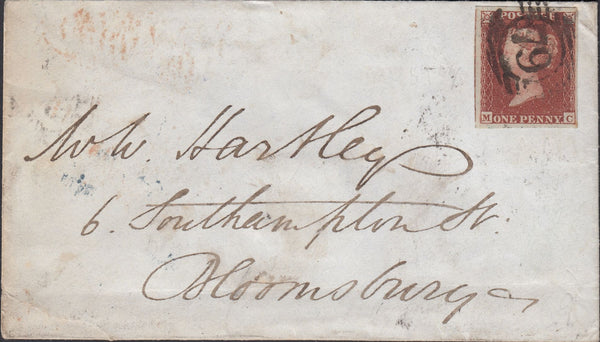 POSTAGE
79
M ONE PENNY C
W. W. Hartley
6. Southampton St.
Bloomsbury